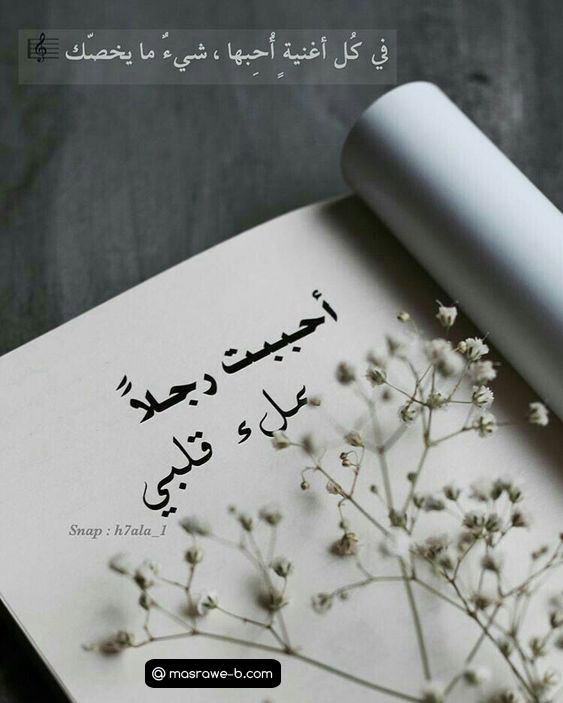 في كُل أغنيةٍ أُحِبها ، شيءٌ ما يخصّك
أحببت رجلاً
بملء قلبي
Snap : h7ala_1
@ masrawe-b.com